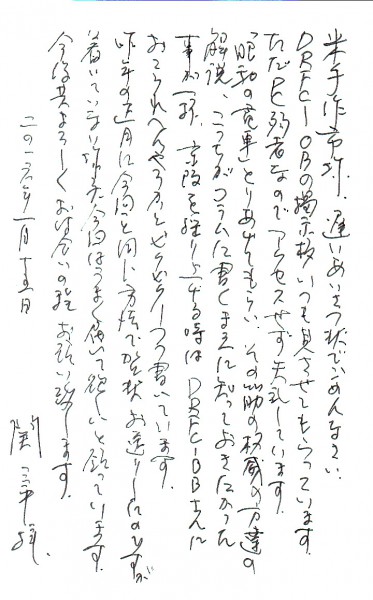 米手作市様. 遅いあいさつ状でごめんなさい.
DRFC-OBの掲示板いつも見させてもらっています.
ただPC弱者なのでアクセスせず失礼しています.
「昭和の電車」とりあげてもらい. その筋の権威の方達の
解説、こっちがコラムに書くまえに知っておきたかった
事が一杯. 京阪を採り上げる時は DRFC-OBさんに
おこられへんやろかとビクビクしつつ書いています.
昨年の正月に今回と同じ方法で賀状お送りしたのですが
着いていない様で今回はうまく届いて欲しいと祈っています.
今後共よろしくおつき合いの程 お願い致します.
二〇一六年一月十五日
関 三平 拝.